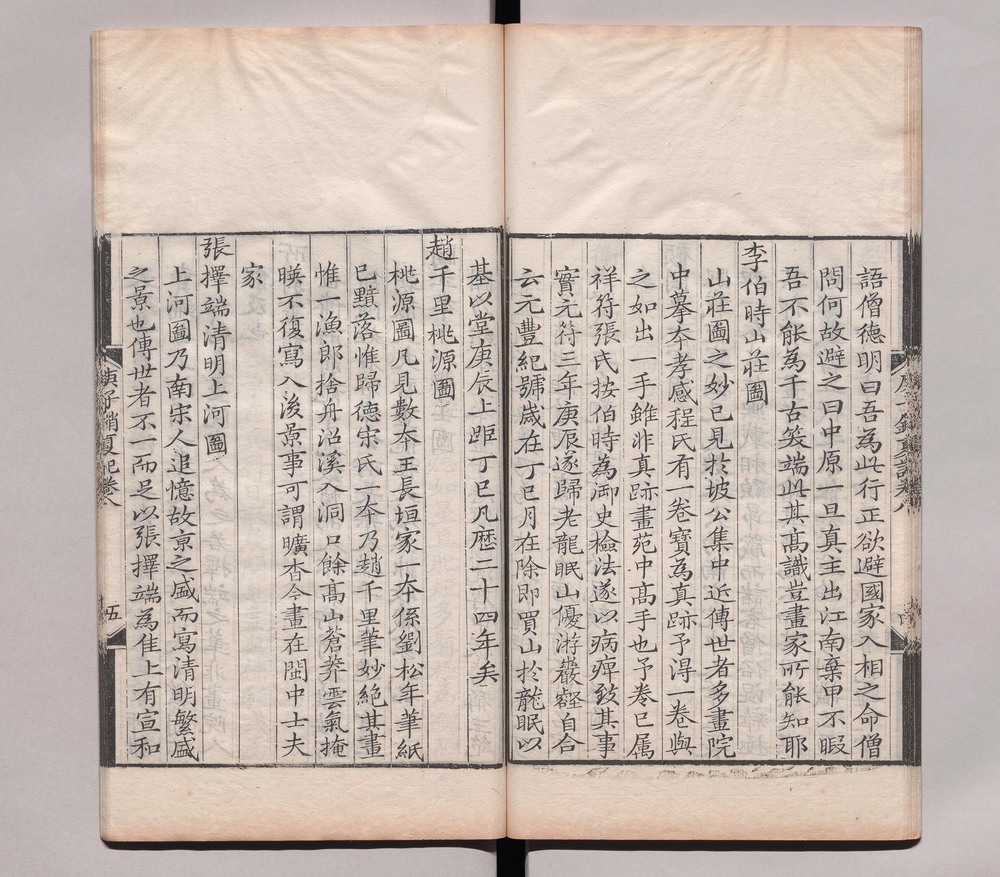 語僧德明曰吾為此行正欲避國家入相之命僧
問何故避之曰中原一旦真主出江南棄甲不暇
吾不能為千古笑端此其高識豈畫家所能知耶
李伯時山莊圖
山莊圖之妙已見扵坡公集中近傳世者多畫院
中摹本孝感程氏有一卷寶為真跡予得一卷與
之如出一手雖非真跡畫苑中高手也予卷已属
祥符張氏按伯時為御史檢法遂以病痺致其事
實元符三年庚辰遂歸老龍眠山優游巖壑自合
云元豐紀號歲在丁巳月在除即買山扵龍眠以
基以堂庚辰上距丁巳凡歴二十四年矣
趙千里桃源圖
桃源圖凡見數本王長垣家一本係劉松年筆紙
已黯落惟歸德宋氏一本乃趙千里筆妙絕其畫
惟一漁郎捨舟沿溪入洞口餘高山蒼莽雲氣掩
暎不復寫入後景事可謂曠杳今畫在閩中士夫
家
張擇端清明上河圖
上河圖乃南宋人追憶故京之盛而寫清明繁盛
之景也傳世者不一而足以張擇端為隹上有宣和
庚子銷夏記卷八
五